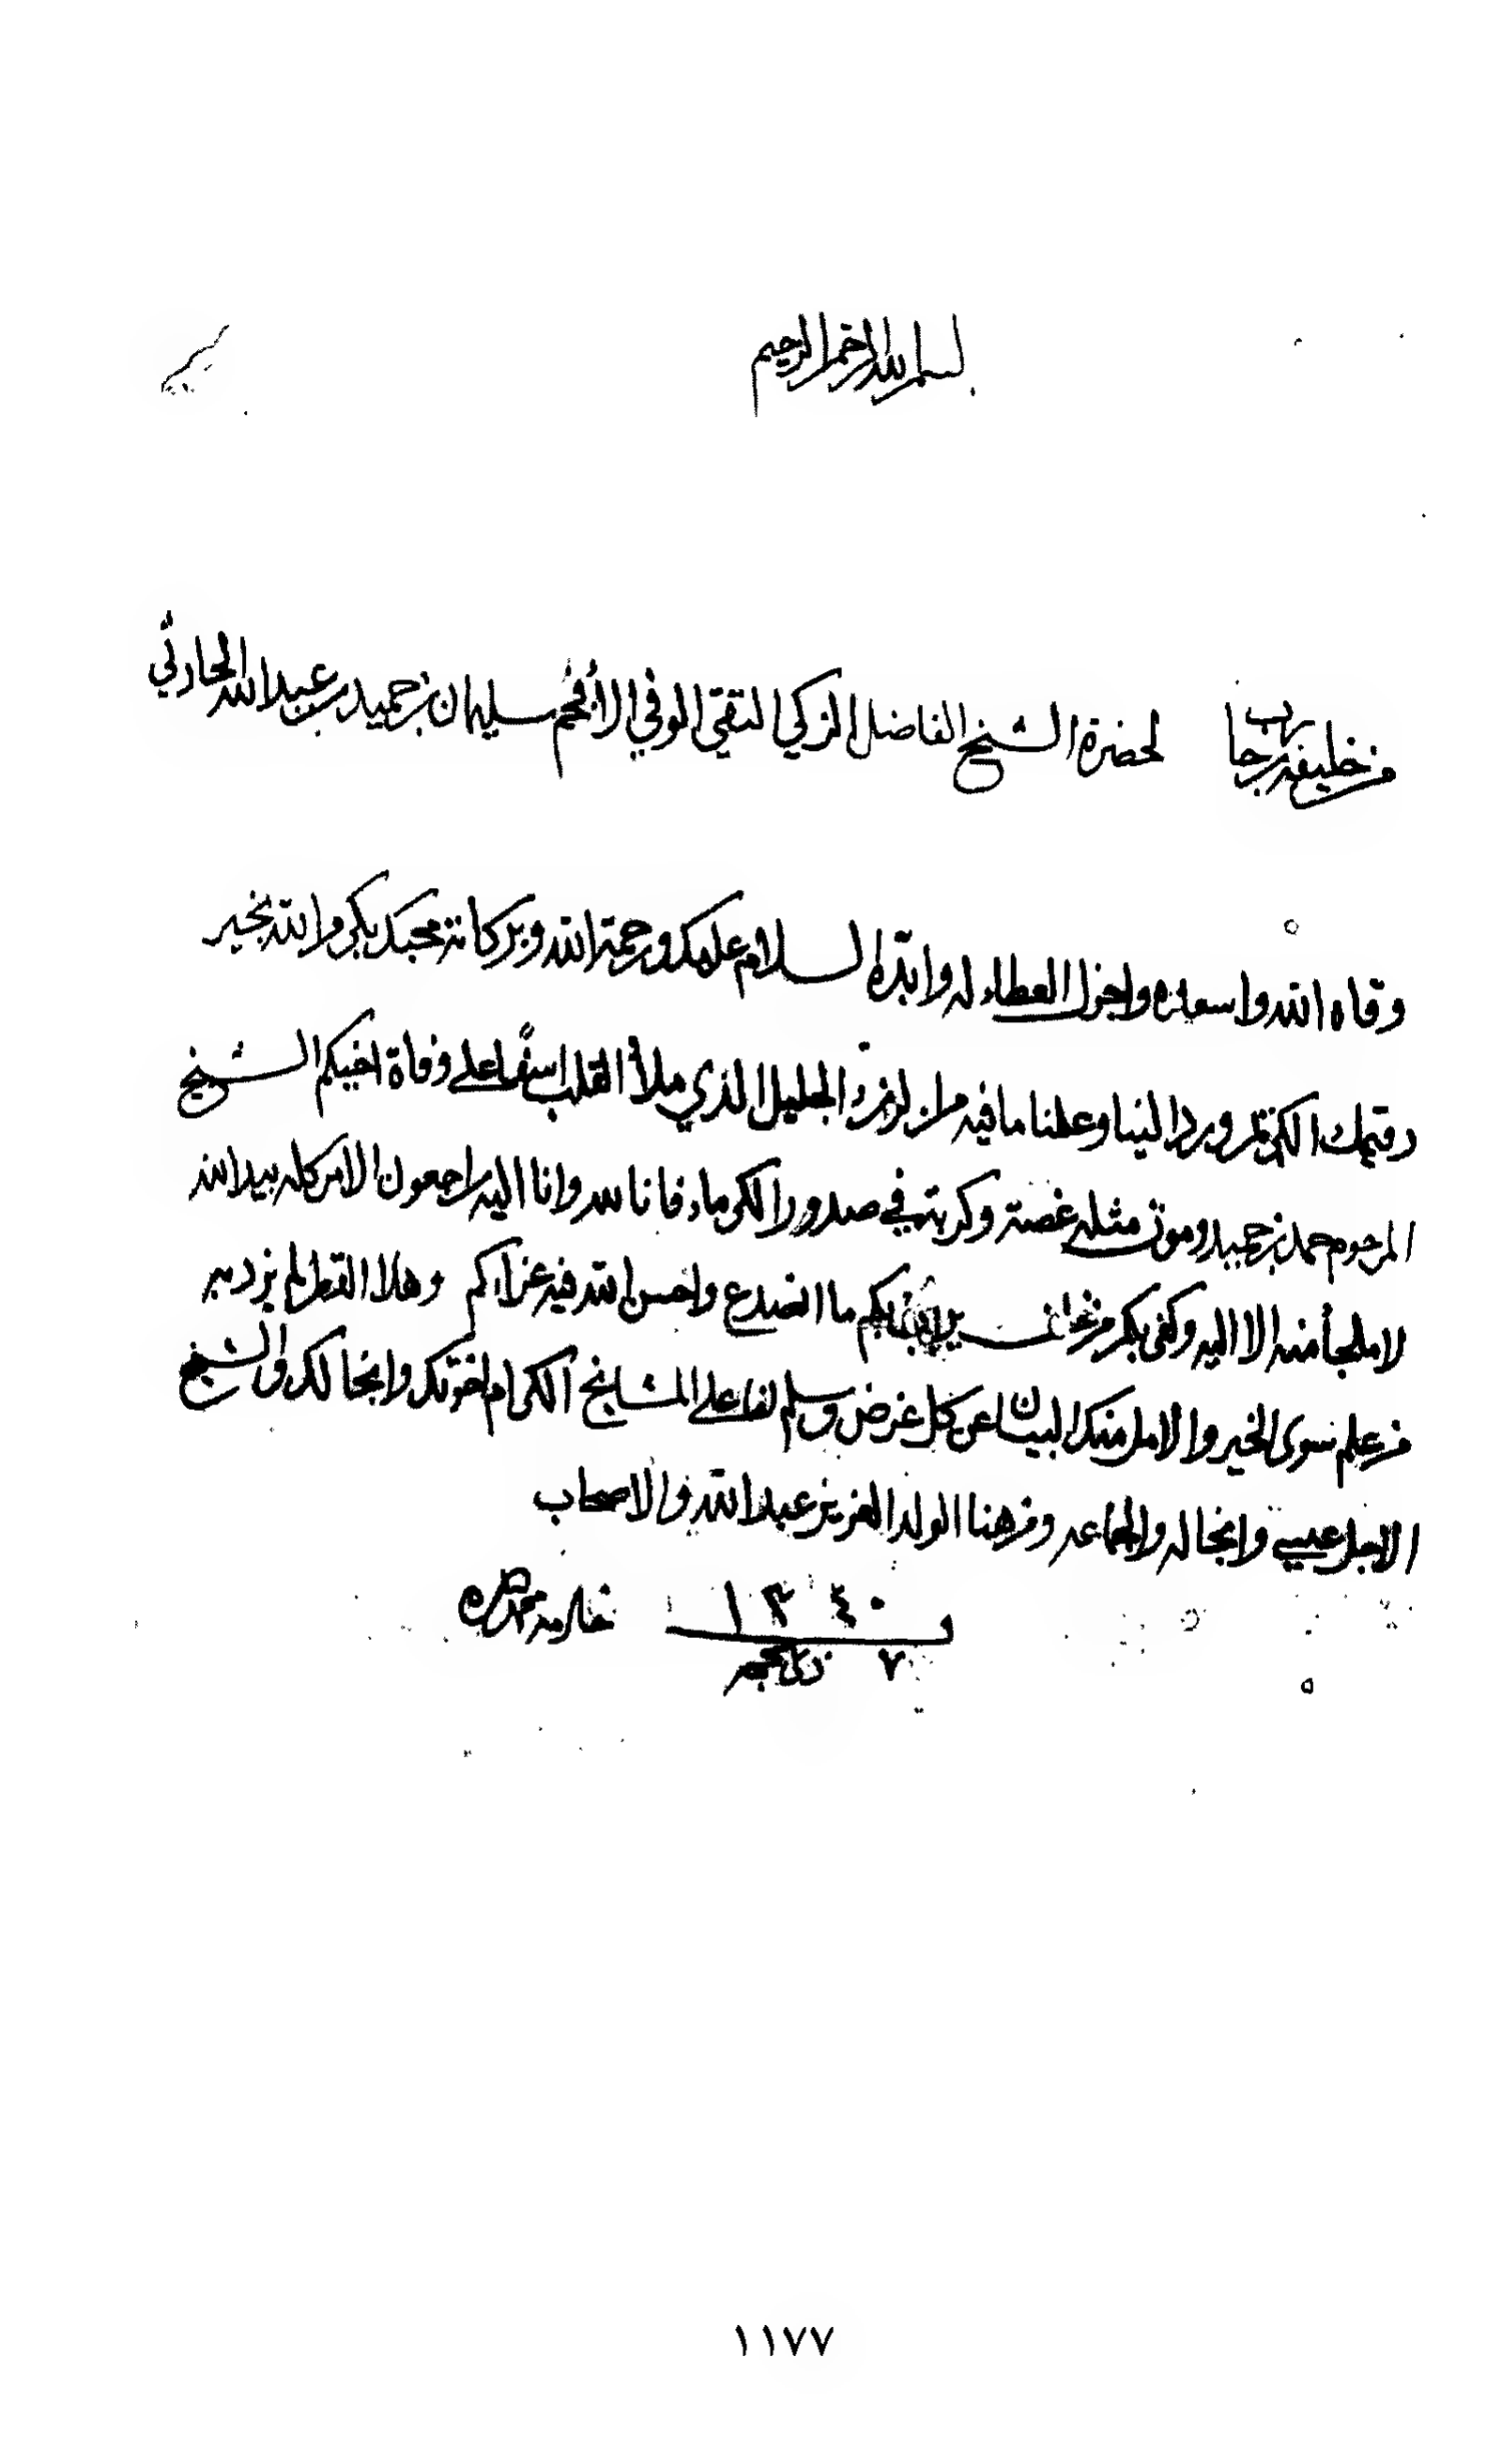 بسم الله الرحمن الرحيم
من خليفه بن جابر لحضرة الشيخ الفاضل الزكي التقي الوفي الأفخم سليمان بن حميد بن عبدالله الحارثي
وقاه الله واسعده واجزل العطاء له وابتداء السلام عليكم ورحمة الله وبركاته محبك بكرم الله بخير
رقيمك الكريم ورد الينا وعلمنا ما فيه من الرزء الجليل الذي ملأ القلب اسفا على وفاة اخيكم الشيخ
المرحوم حمد بن حميد وموت مثله غصة وكربة في صدور الكرماء فانا لله وانا اليه راجعون الامر كله بيد الله
لا ملجأ منه الا اليه وكفى بكم من ما انصدع واحسن الله فيه عزاءكم وهذا القطر لم يزد به
من علم سوى الخير والامل منك البيان عن كل غرض وسلم لنا على المشايخ الكرام اخوتك وانجالك والشيخ
الاجل عيسى وانجاله والجماعه ومن هنا الولد العزيز عبدالله والاصحاب
١٣٤٠
٧ ذي الحجه
١١٧٧